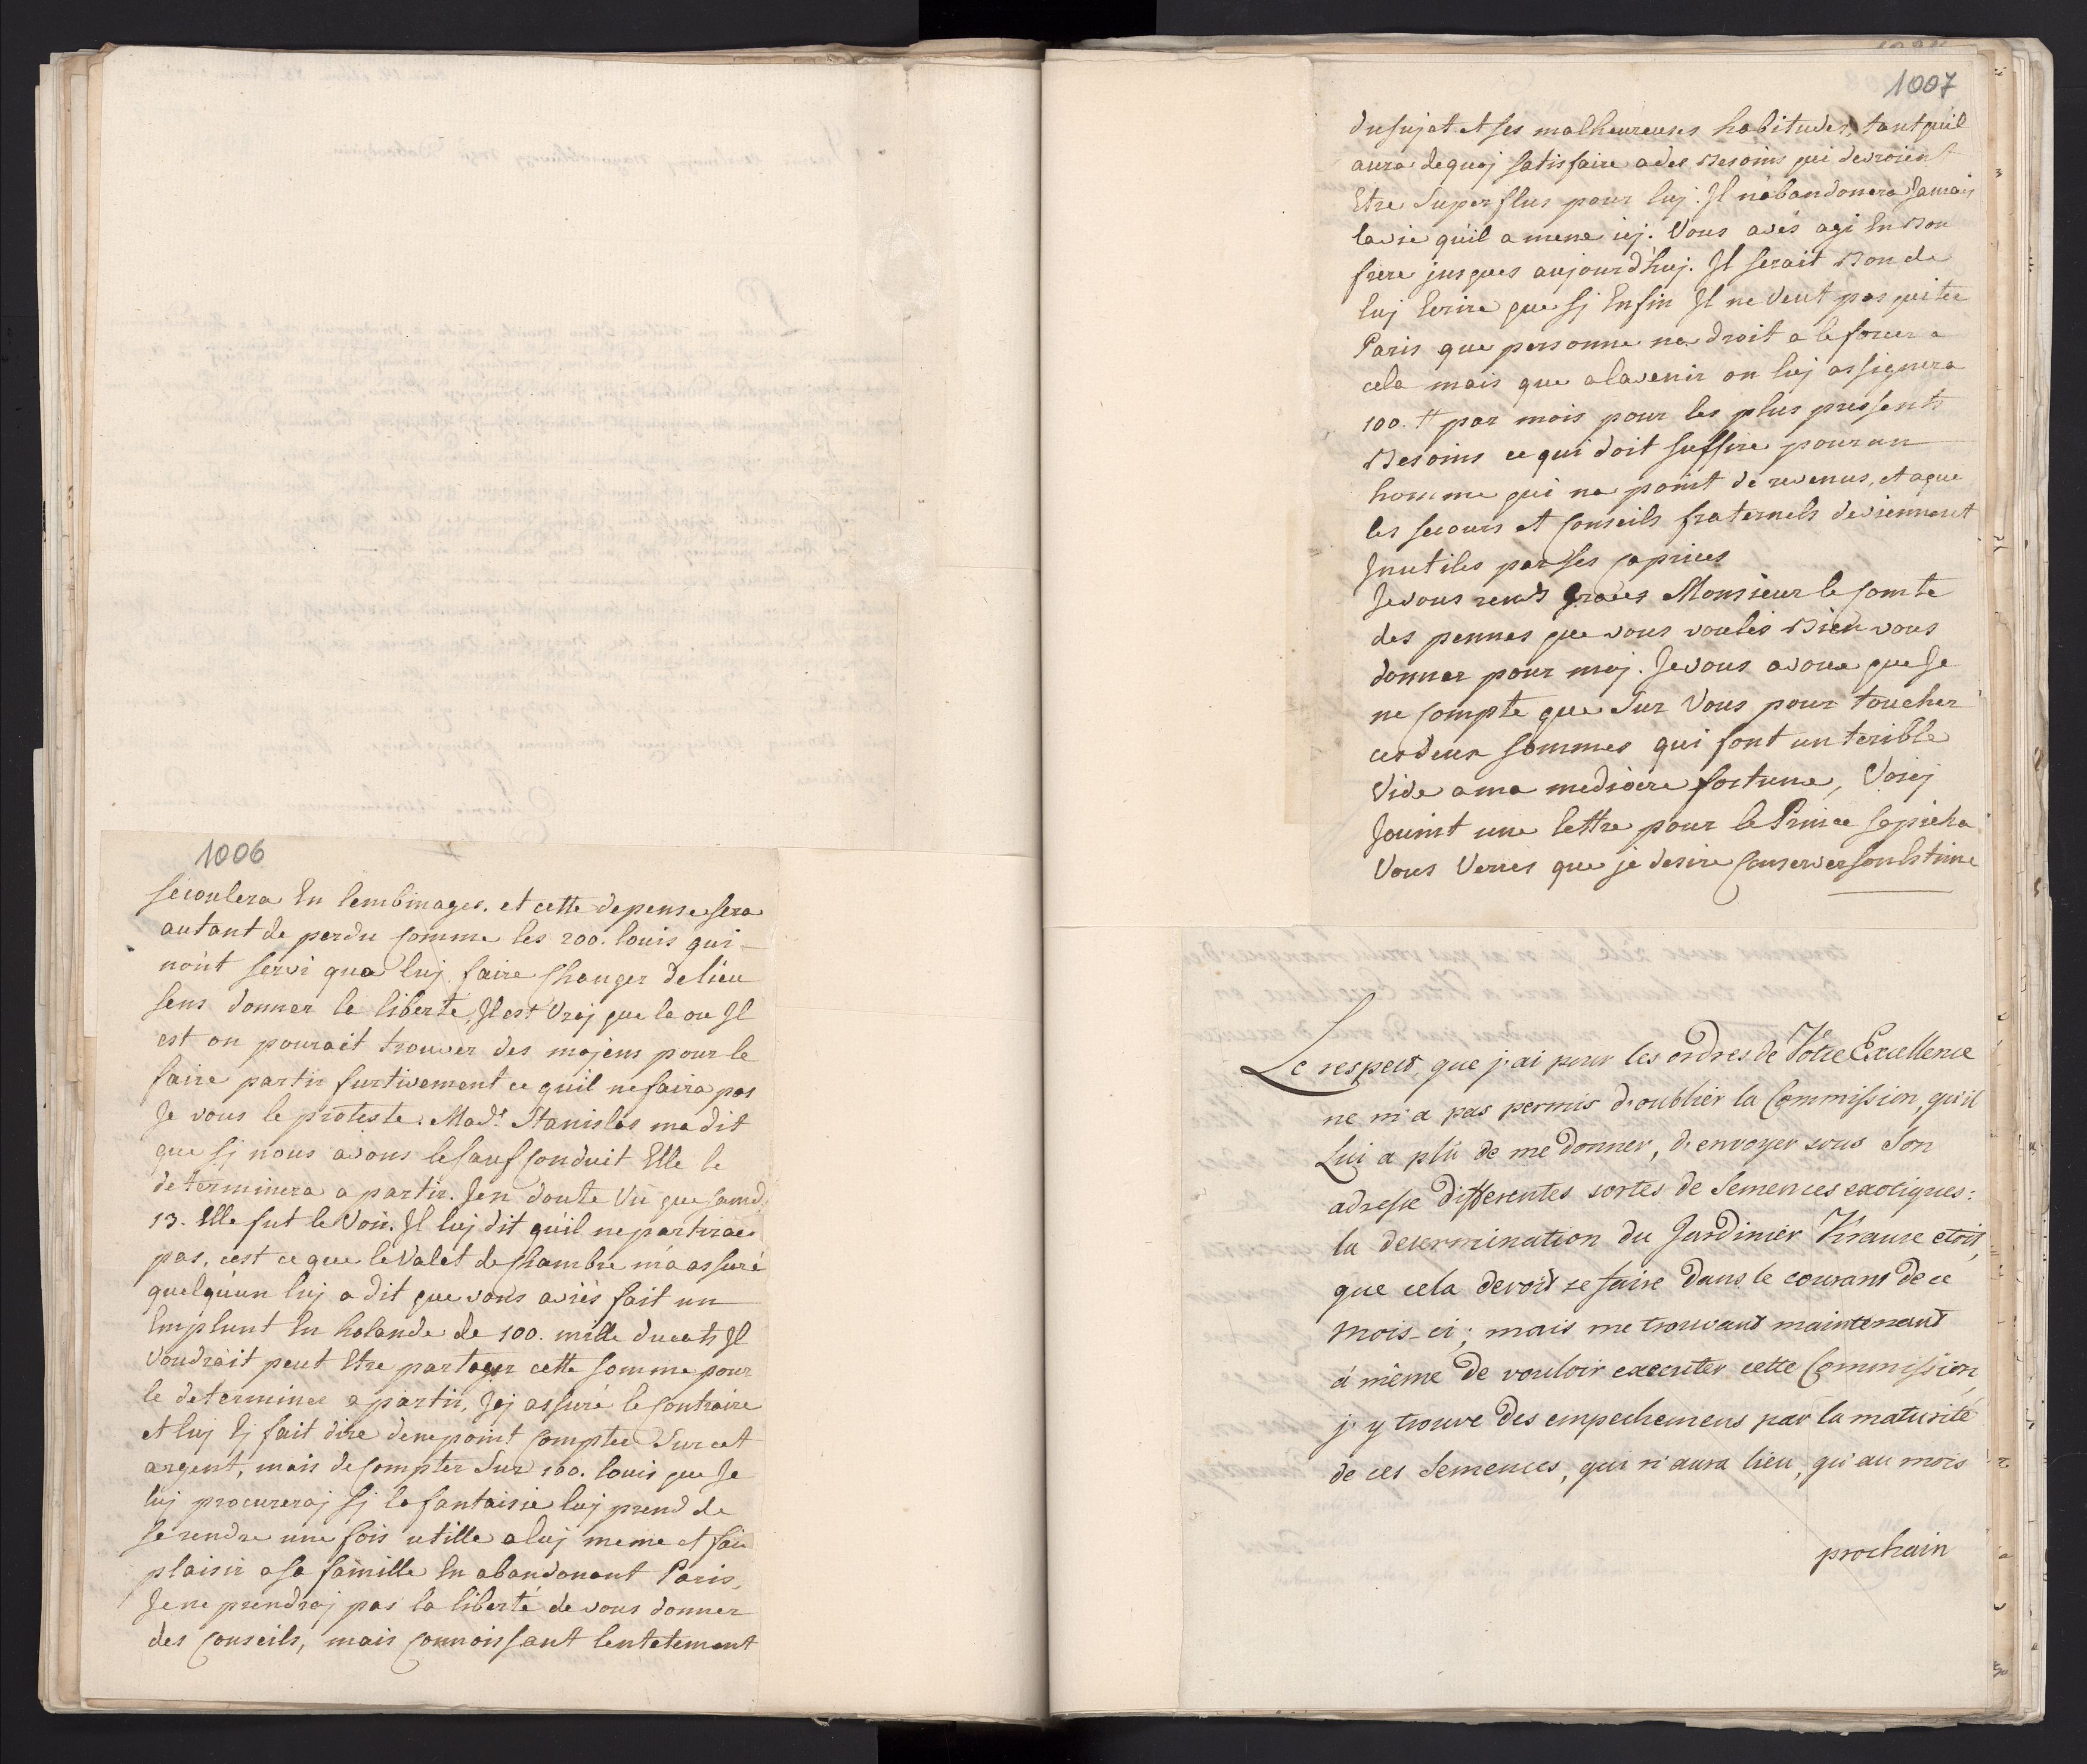 1006
sécoulera En lembinages. et cette depense sera
autant de perdu comme les 200. louis qui
nont servi qua luj faire Changer de lieu
sens donner la liberté, Jl est Vraj que la ou Jl
est on pourait trouver des mojens pour le
faire partir furtivement ce quil ne faira pas
Je vous le proteste. Mad.e Stanislas ma dit
que sj nous avons le sauf conduit Elle le
determinera a partir. Jen doute Vu que samd.
13. Elle fut le Voir. Jl luj dit quil ne partirae
pas, cest ce que le Valet de Chambre m'a assuré
quelquun luj a dit que vous aviés fait un
Emplunt En holande de 100. mille ducats Jl
Voudrait peut Etre partager cette somme pour
le determiner a partir, Jaj assuré le Contraire
et luj Ej fait dire de ne point Compter Sur cet
argent, mais de Compter Sur 100. louis que Je
luj procureraj sj la fantaisie luj prend de
se rendre une fois utille a luj meme et fair
plaisir a sa famille En abandonant Paris,
Je ne prendraj pas la liberté de vous donner
des Conseils, mais Connoissant lentetement
1007
du sujet et ses malheureuses habitudes, tant quil
aura de quoj satisfaire a des Besoins qui devroient
Etre Superflus pour luj. Jl n'abandonera Jamais
la vie quil a mene icj. Vous avés agi En Bon
frere jusques aujourdhuj. Jl serait Bon de
luj Ecrire que sj Enfin Jl ne veut pas quiter
Paris que personne na droit a le forcer a
cela mais que a lavenir on luj assignera
100. # par mois pour les plus pressents
Besoins ce qui doit suffire pour un
homme qui na point de revenus, et a que
les secours et Conseils fraternels deviennent
Jnutiles par ses Caprices
Je vous rends Graces Monsieur le Comte
des pennes que vous voulés Bien vous
donner pour moj. Je vous avoue que Je
ne Compte que Sur Vous pour toucher
ces deux sommes qui font un terible
Vide a ma mediocre fortune, Voicj
Jouint une lettre pour le Prince Sapieha
Vous Verres que je desire Conserver son Estime
Le respect, que j'ai pour les ordres de Votre Excellence
ne m'a pas permis d'oublier la Commission, qu'il
Lui a plû de me donner, d'envoyer sous Son
adresse differentes sortes de Semences exotiques:
la determination du Jardinier Krause etoit,
que cela devoit se faire dans le courant de ce
mois-ci; mais me trouvant maintenant
á même de vouloir executer cette Commission,
j'y trouve des empechemens par la maturité
de ces Semences, qui n'aura lieu, qu'au mois
prochain